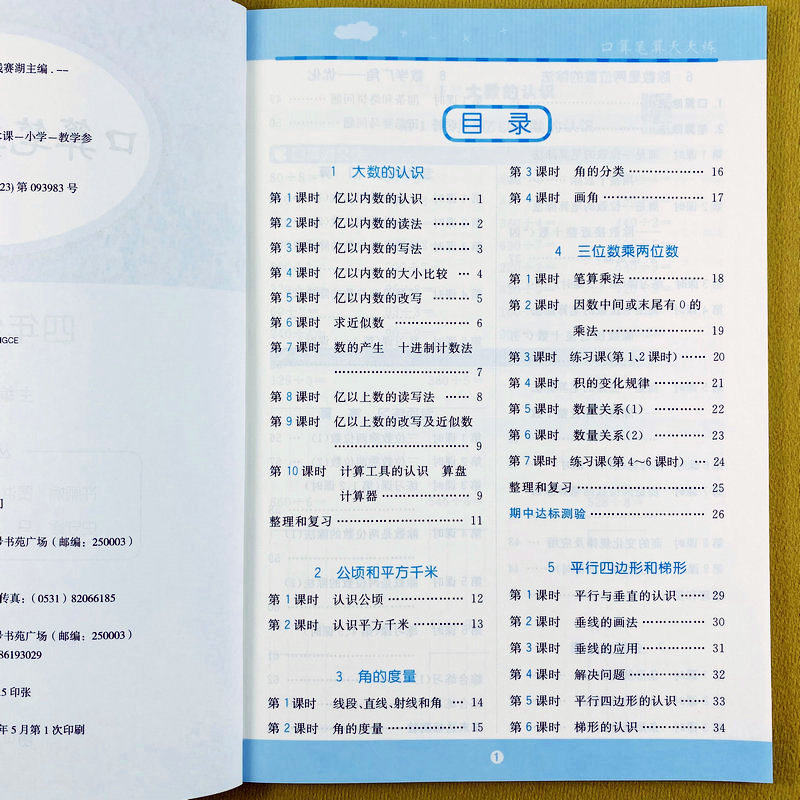 赛湖主编.--
课—小学—教学参
23)第 093983 号
GCE
号书苑广场（邮编：250003）
传真：（0531）82066185
号书苑广场（邮编：250003）
86193029
5 印张
年 5 月第 1 次印刷
口算笔算天天练
目 录
1 大数的认识
第1课时 亿以内数的认识 ……… 1
第2课时 亿以内数的读法 ……… 2
第3课时 亿以内数的写法 ……… 3
第4课时 亿以内数的大小比较 … 4
第5课时 亿以内数的改写 ……… 5
第6课时 求近似数 ……………… 6
第7课时 数的产生 十进制计数法
……………………… 7
第8课时 亿以上数的读写法 …… 8
第9课时 亿以上数的改写及近似数
……………………… 9
第10课时 计算工具的认识 算盘
计算器 ……………… 9
整理和复习 ……………………… 11
2 公顷和平方千米
第1课时 认识公顷 ……………… 12
第2课时 认识平方千米 ………… 13
3 角的度量
第1课时 线段、直线、射线和角 … 14
第2课时 角的度量 ……………… 15
第3课时 角的分类 ……………… 16
第4课时 画角 …………………… 17
4 三位数乘两位数
第1课时 笔算乘法 ……………… 18
第2课时 因数中间或末尾有0的
乘法 …………………… 19
第3课时 练习课(第1、2课时) …… 20
第4课时 积的变化规律 ………… 21
第5课时 数量关系(1) ………… 22
第6课时 数量关系(2) ………… 23
第7课时 练习课(第4～6课时) … 24
整理和复习 ……………………… 25
期中达标测验 …………………… 26
5 平行四边形和梯形
第1课时 平行与垂直的认识 …… 29
第2课时 垂线的画法 …………… 30
第3课时 垂线的应用 …………… 31
第4课时 解决问题 ……………… 32
第5课时 平行四边形的认识 …… 33
第6课时 梯形的认识 …………… 34
1